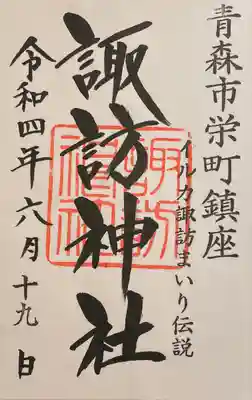 青森市栄町鎮座
イルカ諏訪まいり伝説
諏訪神社
令和四年六月十九日
諏訪神社